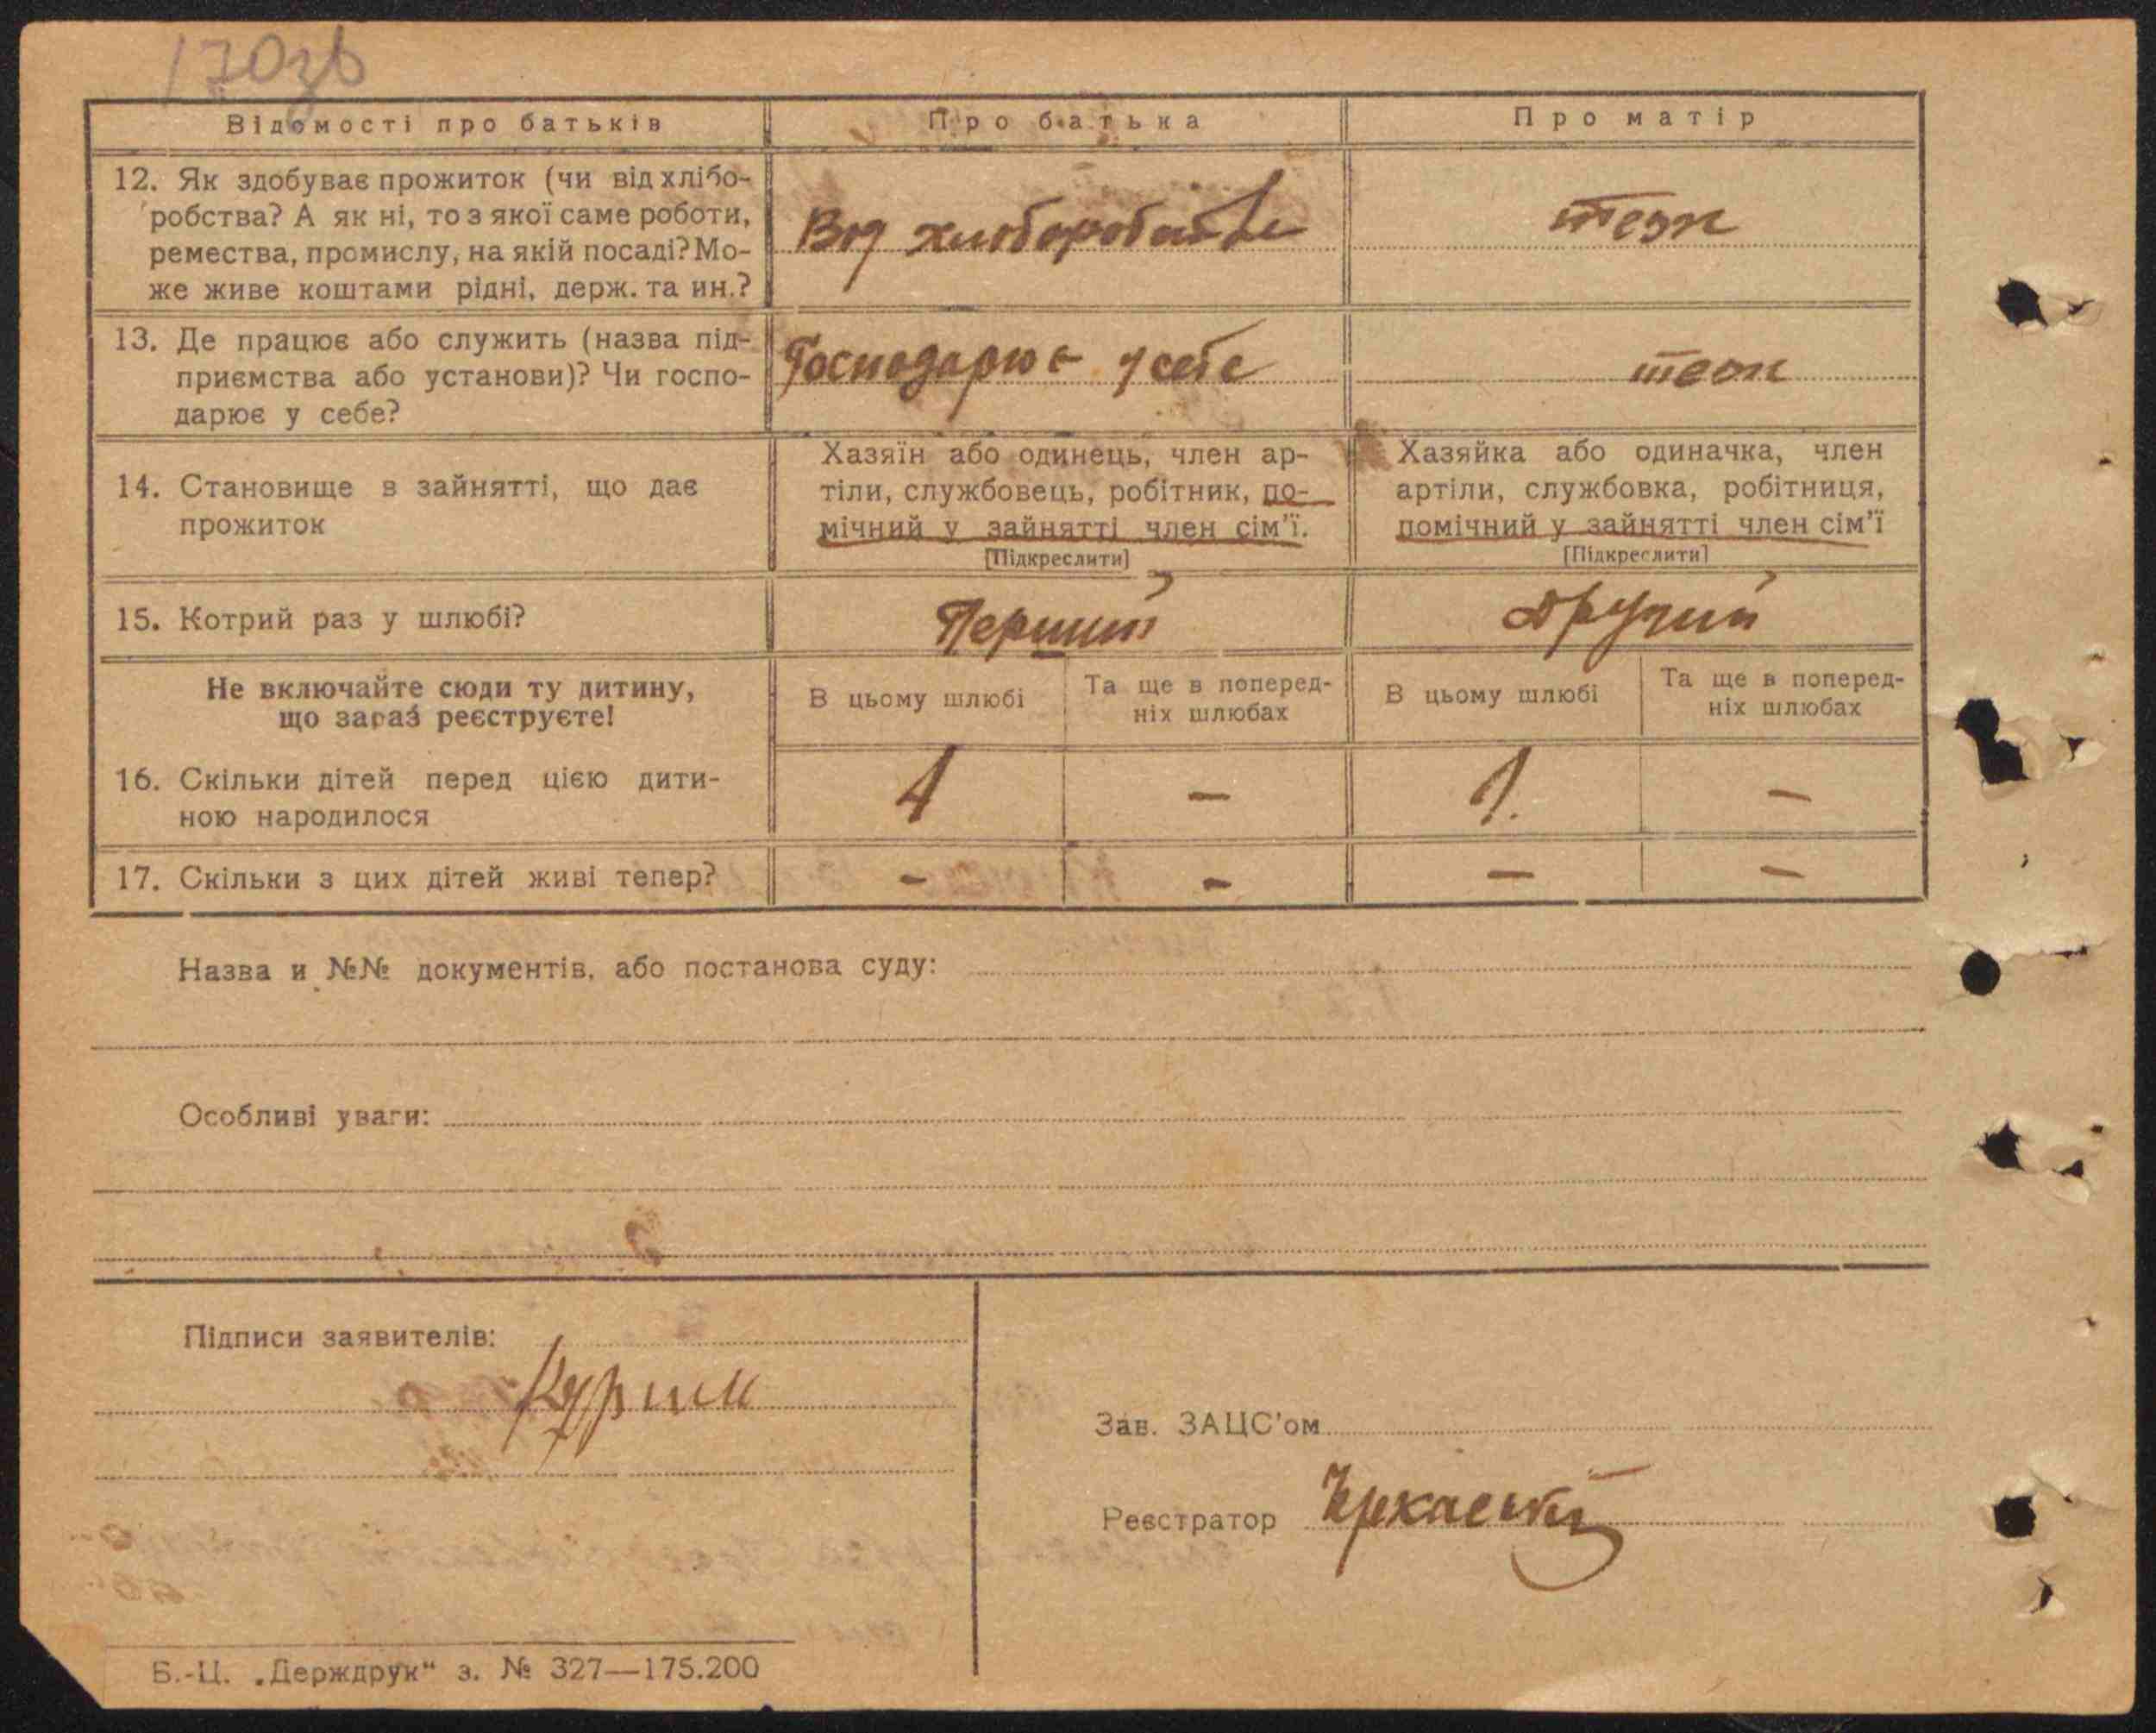 170зв
Відомості про батьків
Про батька
Про матір
12. Як здобуває прожиток (чи від хлібо-
робства? А як ні, то з якої саме роботи,
ремества, промислу, на якій посаді? Мо-
же живе коштами рідні, держ. та ин.?
Від хліборобства
теж
13. Де працює або служить (назва під-
приємства або установи)? Чи госпо-
дарює у себе?
Господарює у себе
теж
14. Становище в зайнятті, що дає
прожиток
Хазяїн або одинець, член ар-
тіли, службовець, робітник, по-
мічний у зайнятті член сім'ї.
[Підкреслити]
Хазяйка або одиначка, член
артіли, службовка, робітниця,
помічний у зайнятті член сім'ї
[Підкреслити]
15. Котрий раз у шлюбі?
Перший
Другий
Не включайте сюди ту дитину,
що зараз реєструєте!
В цьому шлюбі
Та ще в поперед-
ніх шлюбах
В цьому шлюбі
Та ще в поперед-
ніх шлюбах
16. Скільки дітей перед цією дити-
ною народилося
1 - 1. -
17. Скільки з цих дітей живі тепер?
- - - -
Назва и №№ документів, або постанова суду:
Особливі уваги:
Підписи заявителів:
Зав. ЗАЦС'ом
Реєстратор
Б.-Ц. „Держдрук" з. № 327—175.200